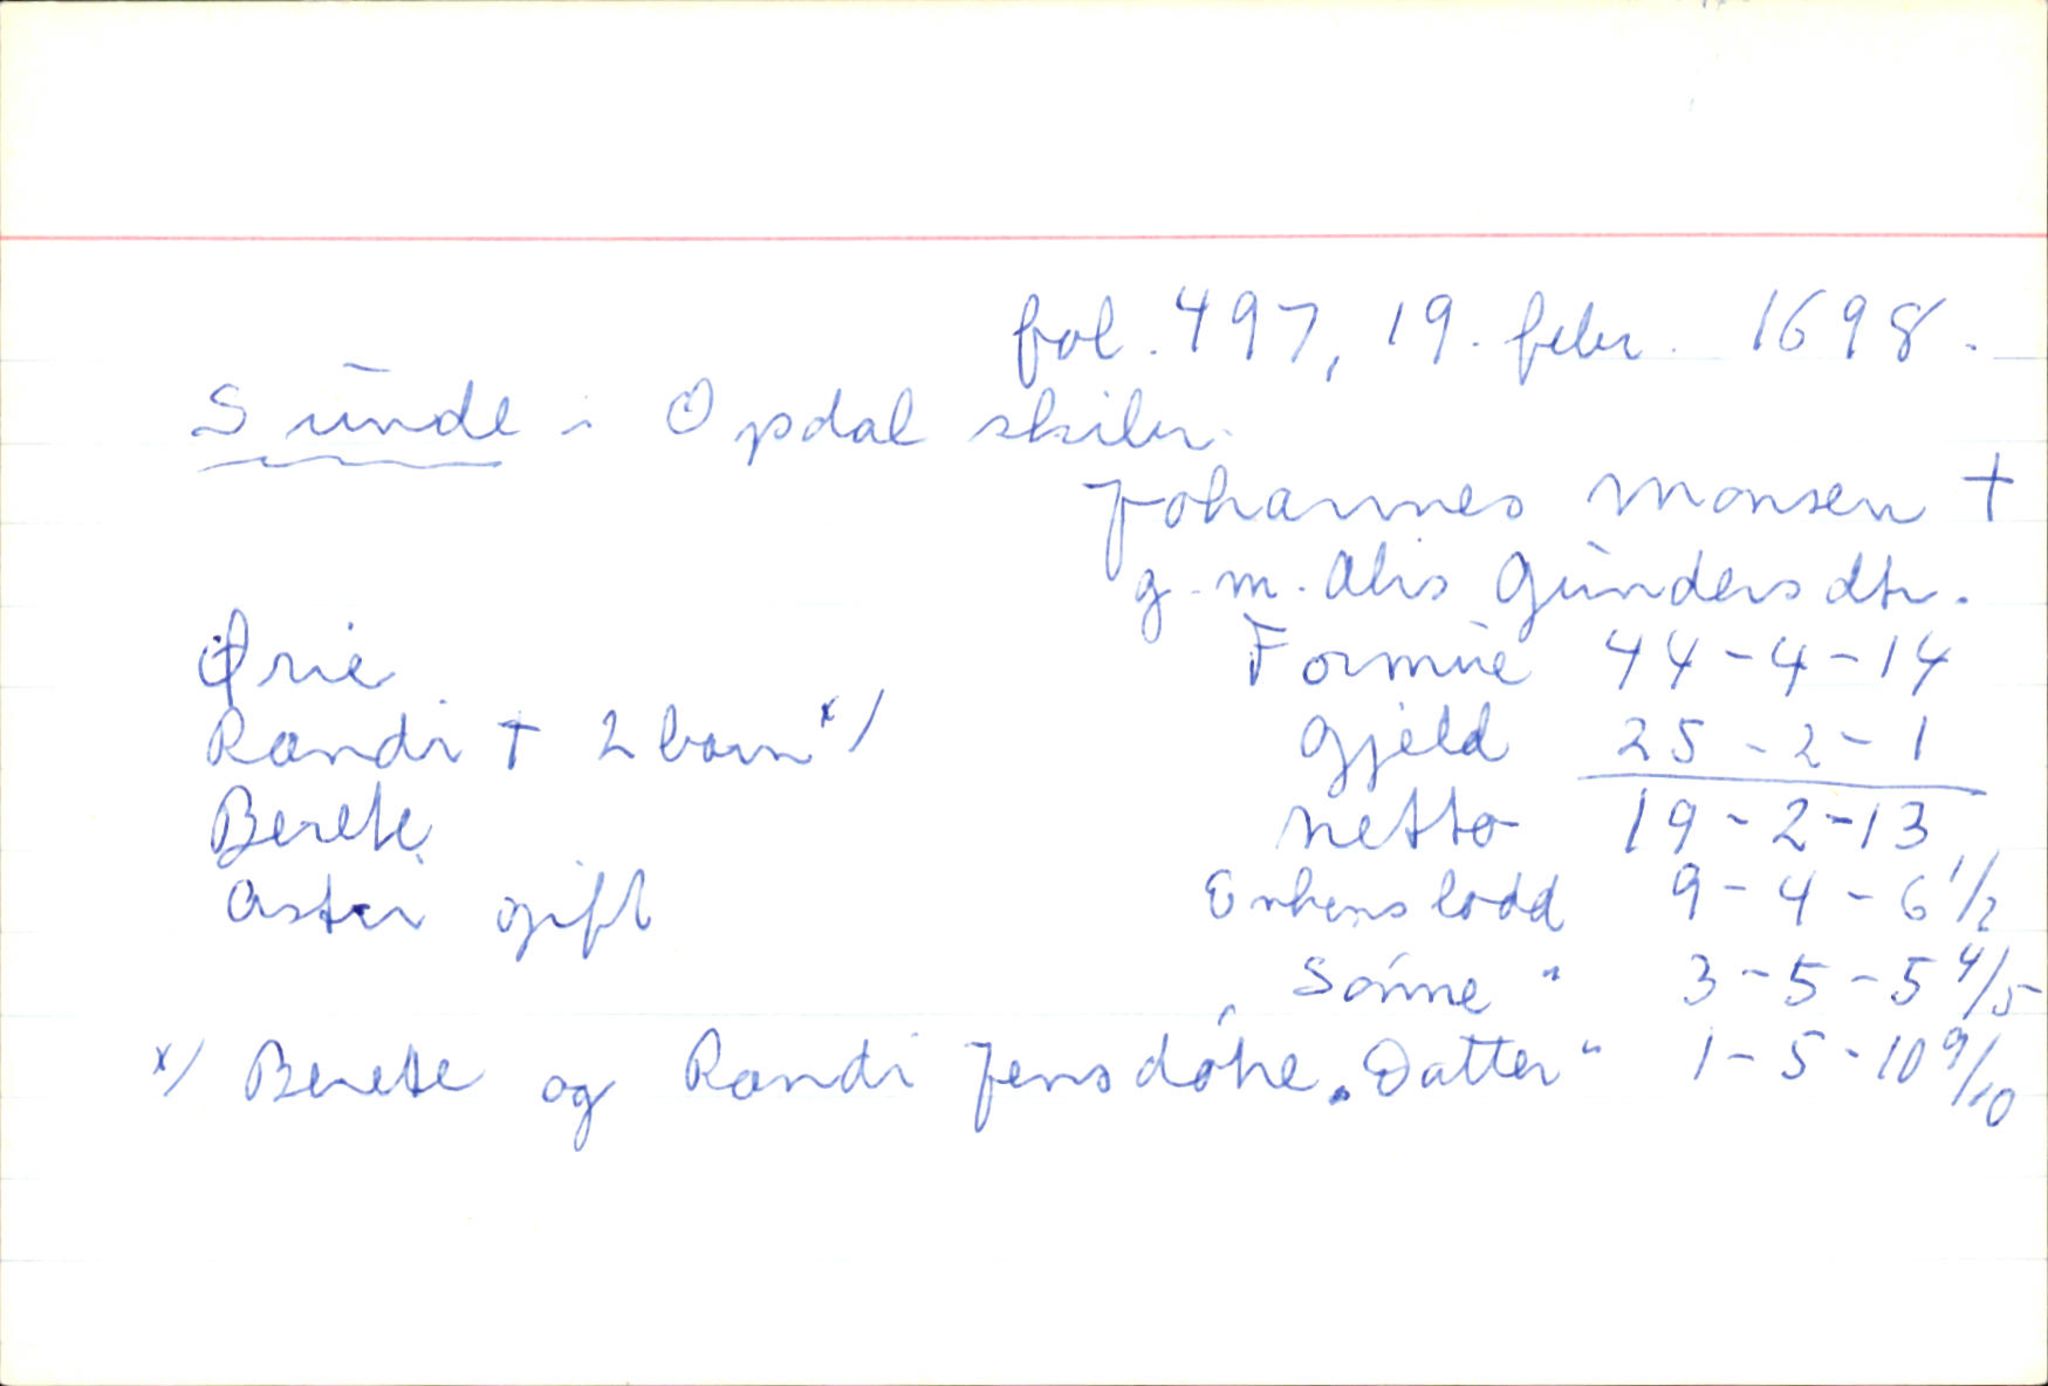 fol. 497, 19. febr. 1698.
Sunde i Opdal skibr.
Johannes Monsen †
g.m. Alis Gundersdtr.
Ørie Formue 44-4-14
Randi † 2 born x/ Gjeld 25-2-1
Berete Netto 19-2-13
Astri gift Enkens lodd 9-4-6 1/2
Sønne " 3-5-5 4/5
x/ Berete og Randi Jensdøtre. Datter " 1-5-10 9/10